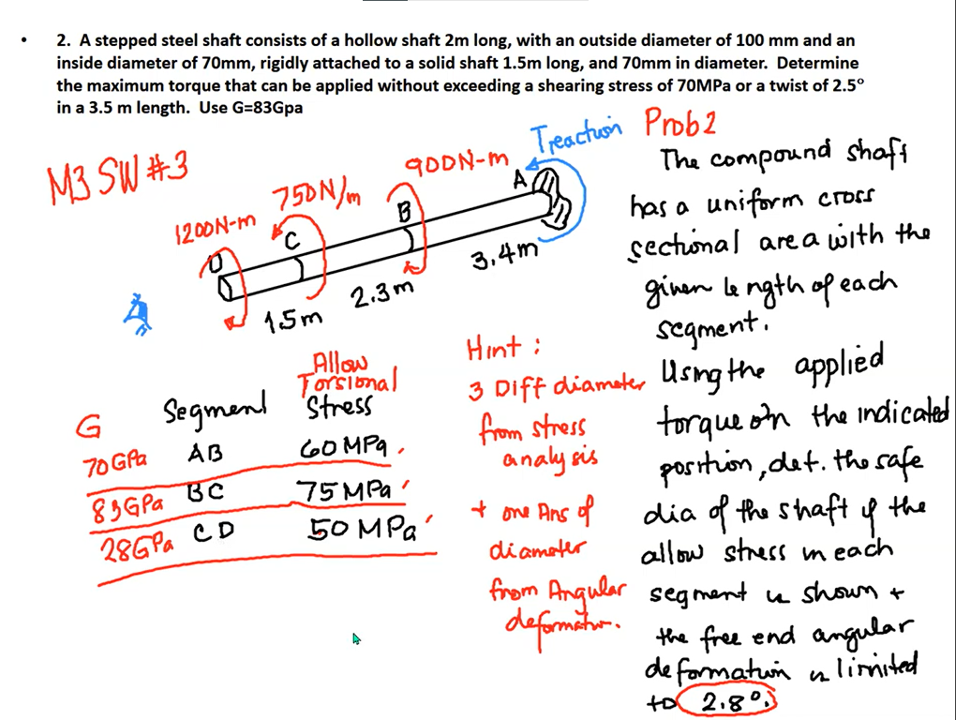 • 2. A stepped steel shaft consists of a hollow shaft 2m long, with an outside diameter of 100 mm and an
inside diameter of 70mm, rigidly attached to a solid shaft 1.5m long, and 70mm in diameter. Determine
the maximum torque that can be applied without exceeding a shearing stress of 70MPa or a twist of 2.5°
in a 3.5 m length. Use G=83Gpa
M3 SW #3
1200N-m
750N/m
900N-m
Treaction
D
C
B
A
1.5m
2.3m
3.4m
G
Segment
Allow
Torsional
Stress
70GPa AB 60MPa
83GPa BC 75MPa
28GPa CD 50MPa
Hint :
3 Diff diameter
from stress
analysis
+ one Ans of
diameter
from Angular
deformatn.
Prob2
The compound shaft
has a uniform cross
sectional area with the
given length of each
segment.
Using the applied
torque on the indicated
position, det. the safe
dia of the shaft if the
allow stress in each
segment is shown +
the free end angular
deformation is limited
to 2.8°.